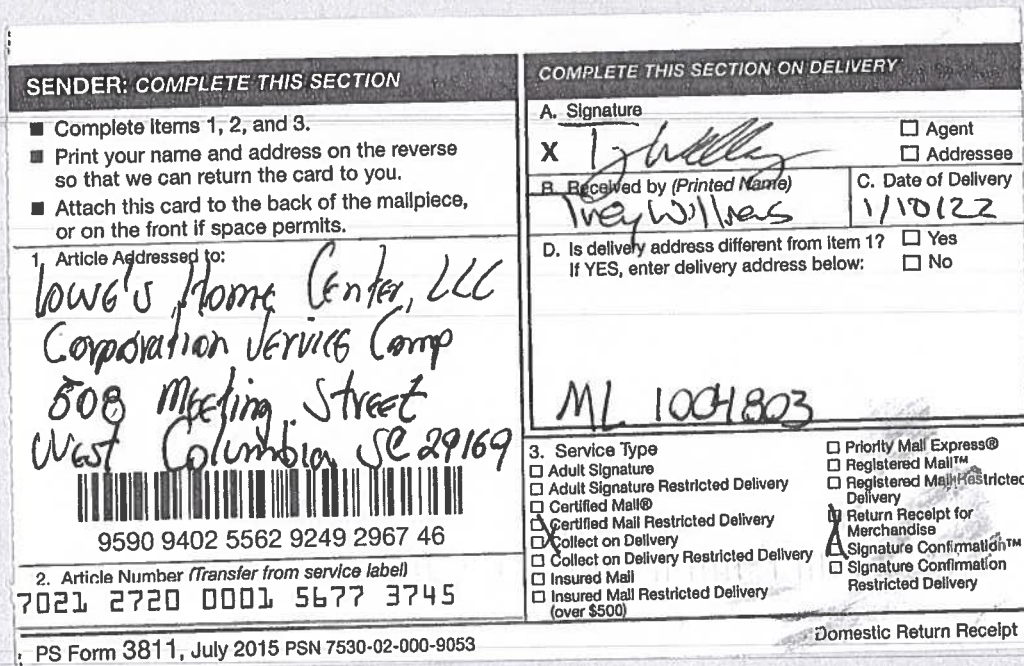 SENDER: COMPLETE THIS SECTION
■ Complete items 1, 2, and 3.
■ Print your name and address on the reverse
so that we can return the card to you.
■ Attach this card to the back of the mailpiece,
or on the front if space permits.
1. Article Addressed to:
Lowe's Home Center, LLC
Corporation Service Comp
508 Meeting Street
West Columbia, SC 29169
9590 9402 5562 9249 2967 46
2. Article Number (Transfer from service label)
7021 2720 0001 5677 3745
PS Form 3811, July 2015 PSN 7530-02-000-9053
COMPLETE THIS SECTION ON DELIVERY
A. Signature
X
☐ Agent
☐ Addressee
B. Received by (Printed Name)
C. Date of Delivery
1/10/22
D. Is delivery address different from item 1? ☐ Yes
If YES, enter delivery address below: ☐ No
ML 1004803
3. Service Type
☐ Adult Signature
☐ Adult Signature Restricted Delivery
☐ Certified Mail®
☐ Certified Mail Restricted Delivery
☐ Collect on Delivery
☐ Collect on Delivery Restricted Delivery
☐ Insured Mail
☐ Insured Mail Restricted Delivery
(over $500)
☐ Priority Mail Express®
☐ Registered Mail™
☐ Registered Mail Restricted
Delivery
☐ Return Receipt for
Merchandise
☐ Signature Confirmation™
☐ Signature Confirmation
Restricted Delivery
Domestic Return Receipt